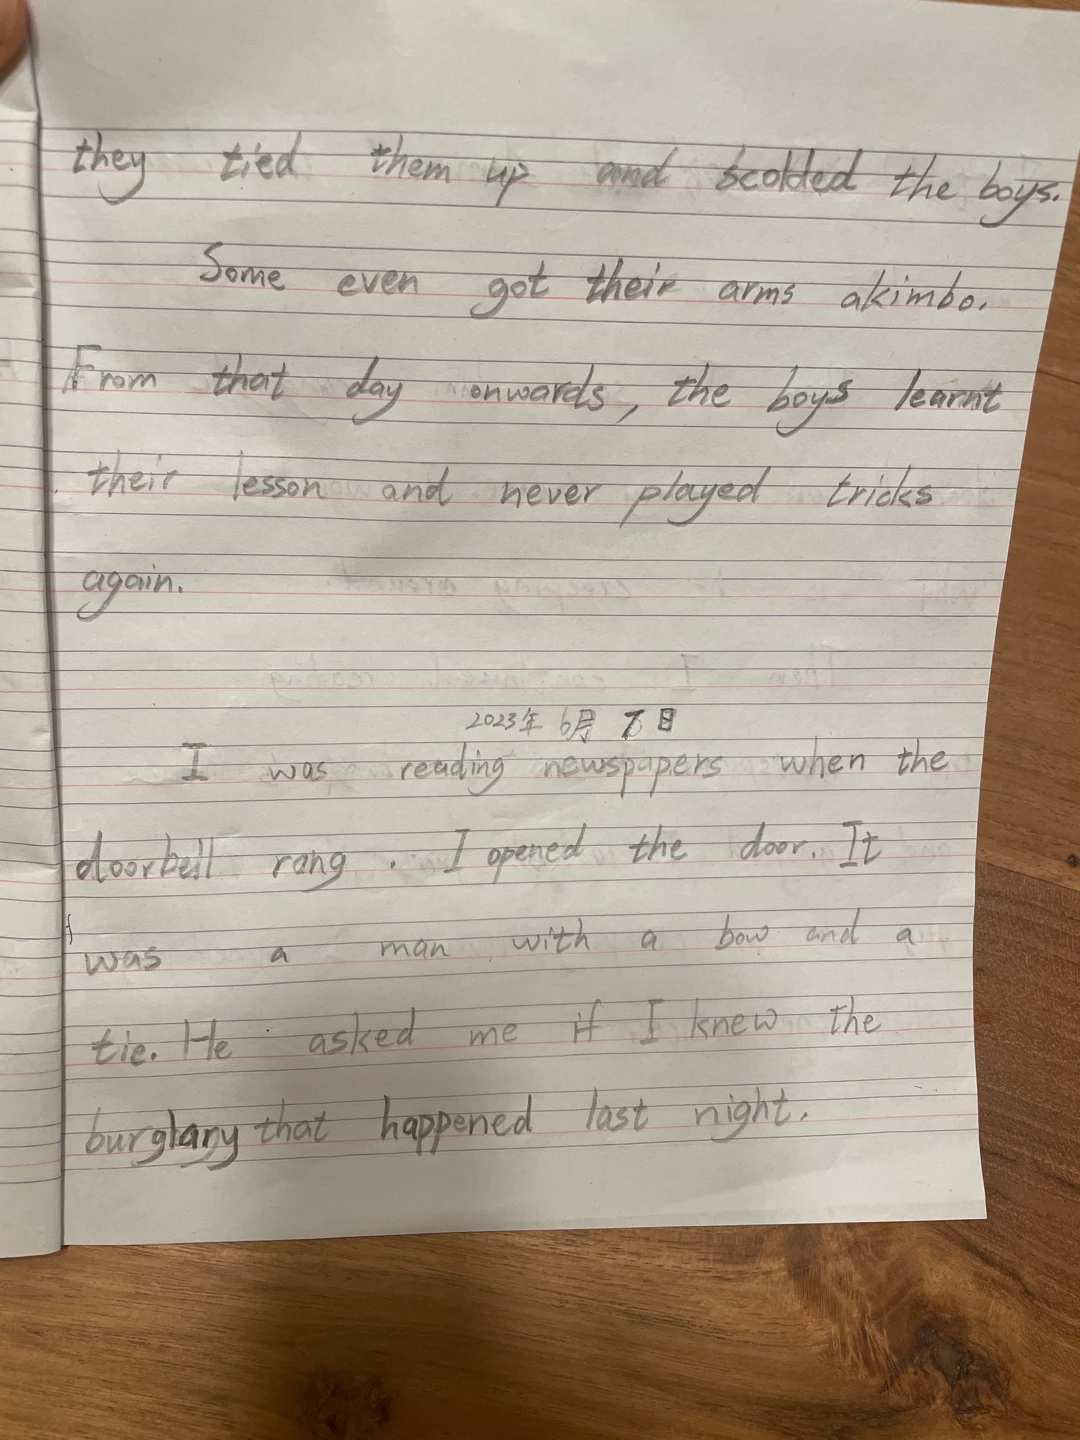 they tied them up and scolded the boys.
Some even got their arms akimbo.
From that day onwards, the boys learnt
their lesson and never played tricks
again.
2023年 6月 7日
I was reading newspapers when the
doorbell rang. I opened the door. It
was a man with a bow and a
tie. He asked me if I knew the
burglary that happened last night.